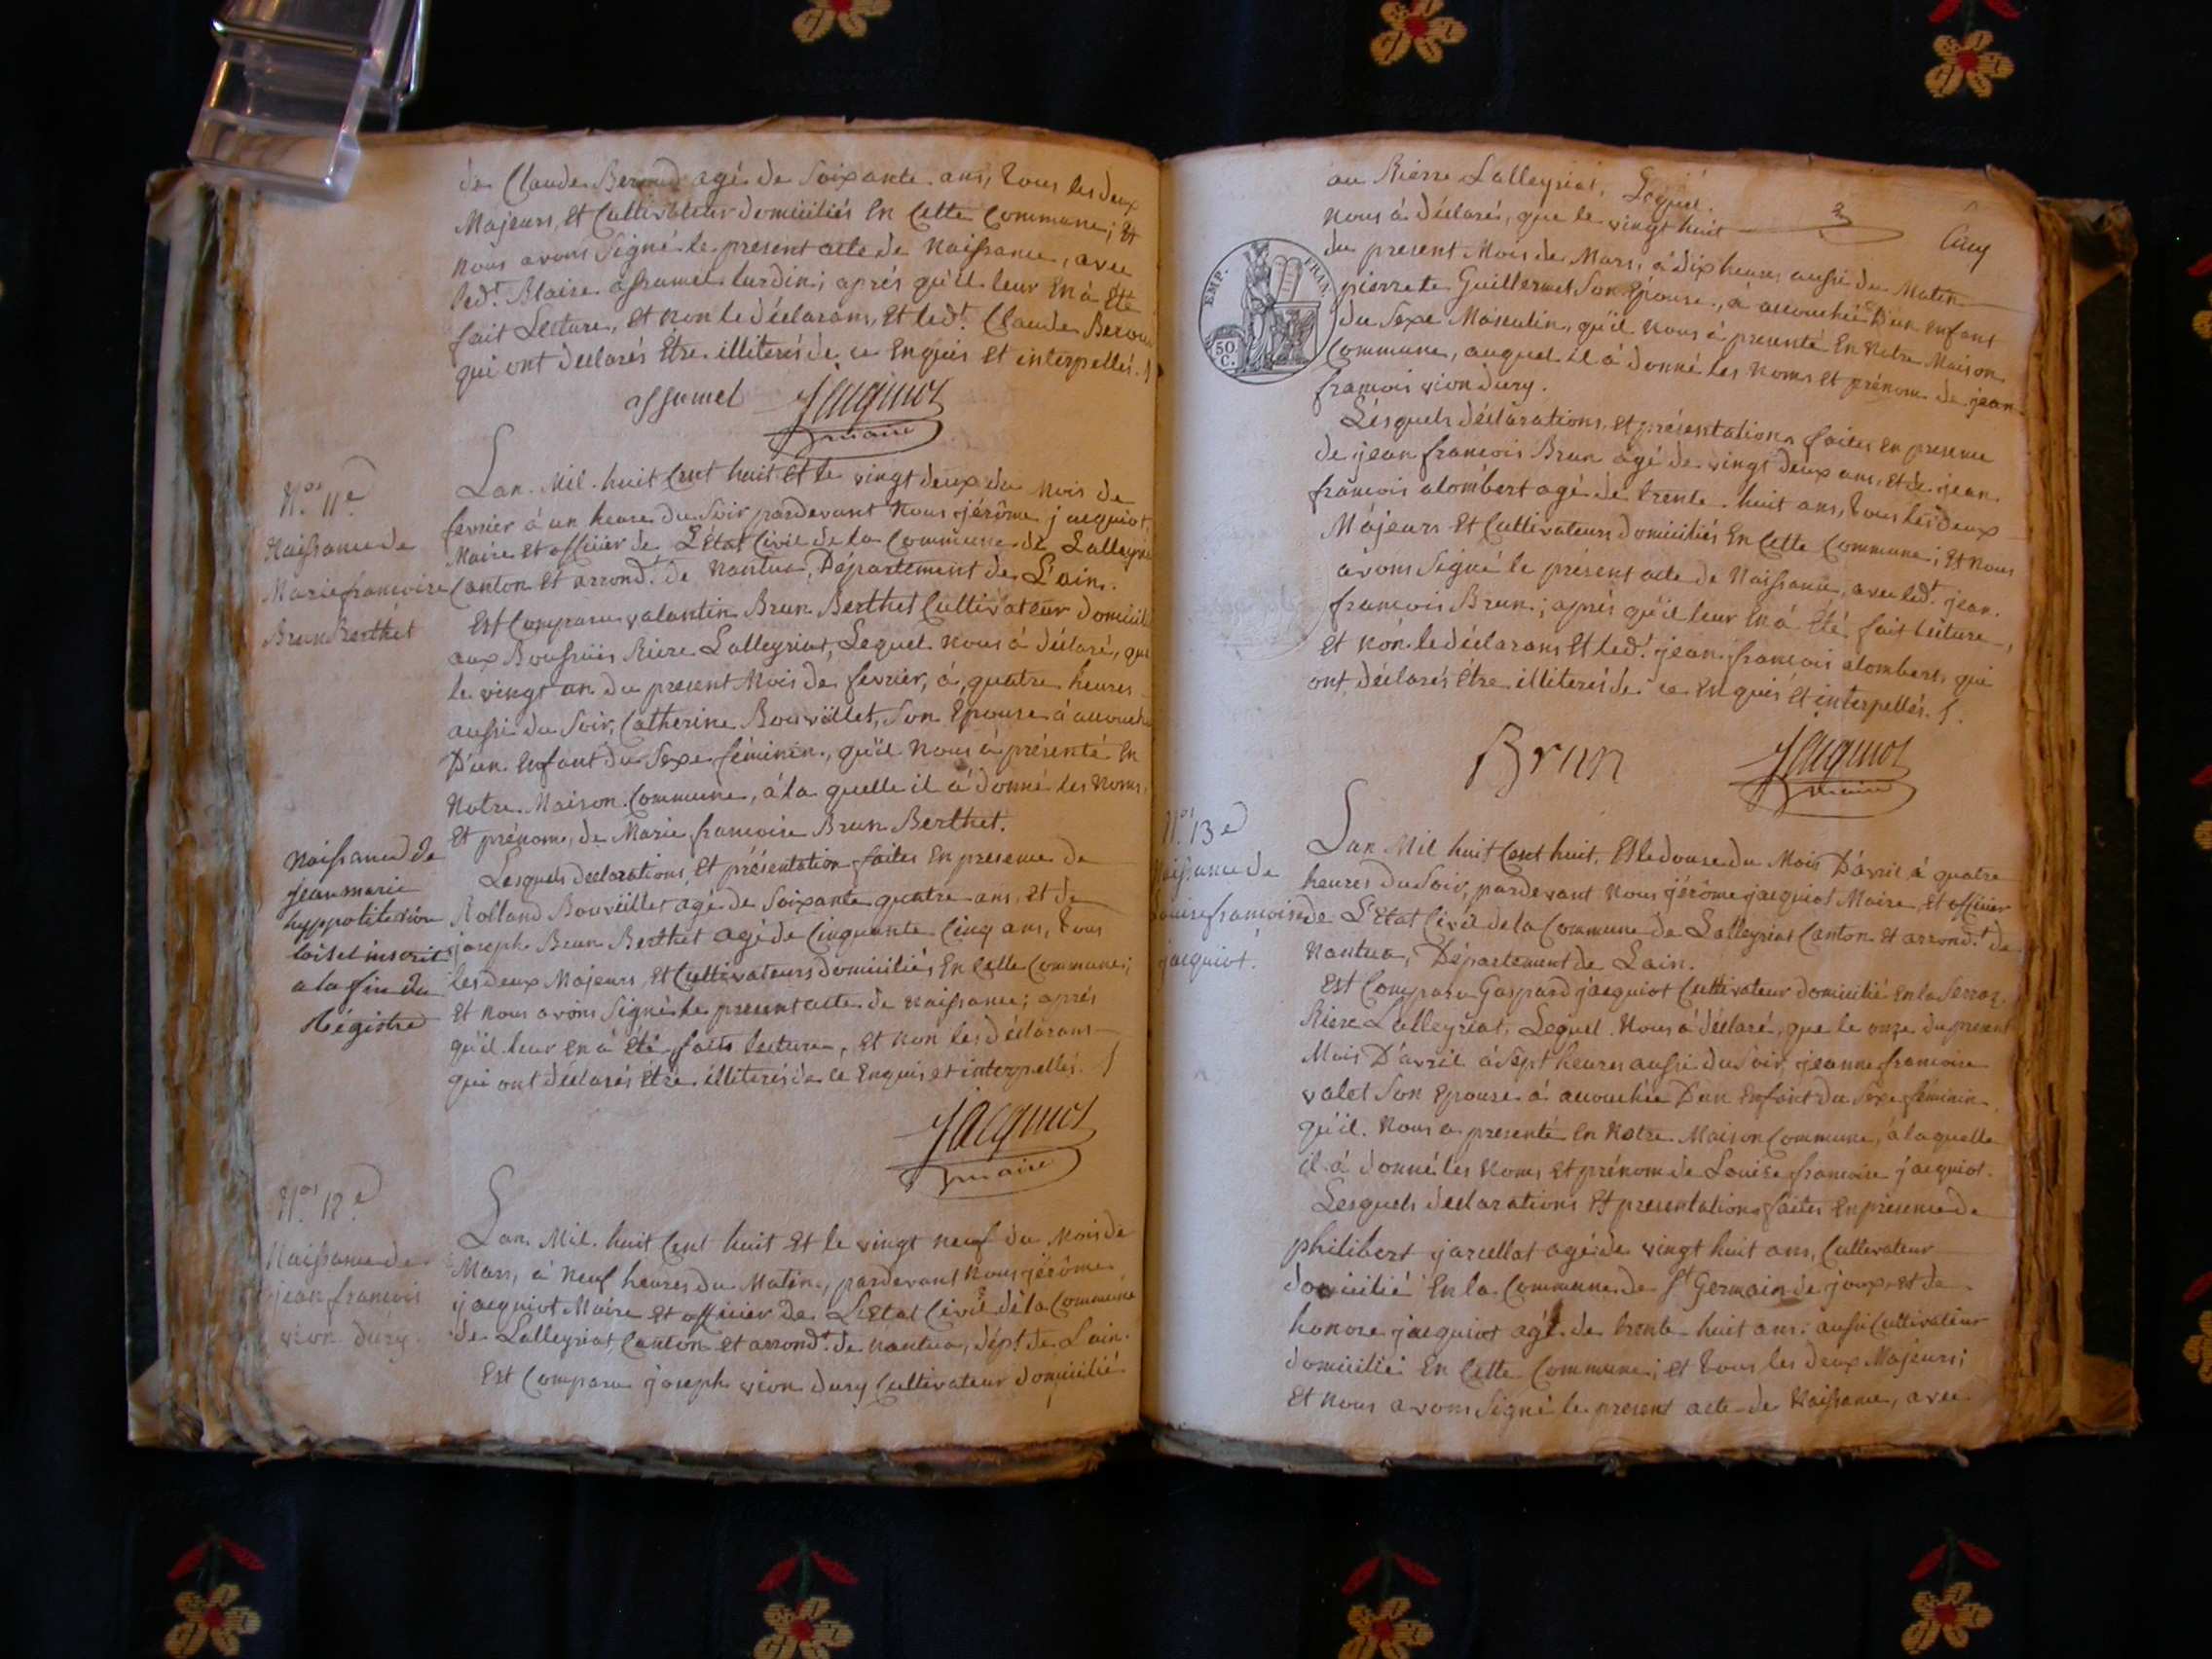 de Claude Beroud agé de Soixante ans, tous les deux
Majeurs, Et Cultivateur domiciliés En Cette Commune; Et
Nous avons Signé le present acte de Naissance, avec
ledt. Blaise assumel lurdin; aprés qu'il leur En à Eté
fait Lecture, Et Non le déclarans, Et ledt. Claude Berou
qui ont declarés Etre illiterés de ce Enquis Et interpellés.
assumel Jacquiot
maire
N.º 11.e
Naissance de
Marie francoise
Brun Berthet
Lan Mil huit Cent huit Et le vingt deux du Mois de
fevrier à un heure du Soir pardevant Nous jérôme jacquiot
Maire Et officier de L'Etat Civil de la Commune de Lalleyriat
Canton Et arrondt. de Nantua, Département de L'ain.
Est Comparu valantin Brun Berthet Cultivateur domicili
aux Rière Lalleyriat, Lequel Nous à déclaré, que
le vingt un du present Mois de fevrier, à quatre heures
aussi du Soir, Catherine Bouvillet, Son Epouse à accouch
D'un Enfant du Sexe féminin, qu'il Nous à présenté En
Notre Maison Commune, à la quelle il à donné les Noms,
Et prénoms, de Marie francoise Brun Berthet.
Lesquels declarations Et présentation faites En presence de
Rolland Bouvillet agé de Soixante quatre ans, Et de
joseph Brun Berthet agé de Cinquante Cinq ans, tous
les deux Majeurs, Et Cultivateurs domiciliés En Cette Commune;
Et Nous avons Signé le present acte de Naissance; aprés
qu'il leur En à Eté faits lecture, Et Non les déclarans
qui ont déclarés Etre illiterés de ce Enquis et interpellés.
Naissance de
jean marie
hyppolite
inscrit
a la fin du
Régistre
Jacquiot
maire
N.º 12.e
Naissance de
jean francois
vion dury.
Lan Mil huit Cent huit Et le vingt neuf du Mois de
Mars, à Neuf heures du Matin, pardevant Nous jérôme
jacquiot Maire Et officier de L'Etat Civil de la Commune
de Lalleyriat, Canton Et arrondt. de Nantua, dépt. de Lain.
Est Comparu joseph vion dury Cultivateur domicilié
au Rierre Lalleyriat, Lequel.
Nous à déclarés, que le vingt huit
du present Mois de Mars, à dix heures aussi du Matin
pierrete Guillermet Son Epouse, à accouchée D'un Enfant
du Sexe Masculin, qu'il Nous à presenté En Notre Maison
Commune, auquel il à donné les Noms Et prénom de jean
francois vion dury.
EMP. FRAN.
50
C.
Lesquels déclarations, et présentations faites en presence
de jean francois Brun agé de vingt deux ans, et de jean
francois alombert agé de trente huit ans, tous les deux
Majeurs Et Cultivateurs domiciliés En Cette Commune; Et Nous
avons Signé le présent acte de Naissance, avec ledt. jean
francois Brun; aprés qu'il leur En à Eté fait lecture,
Et Non le déclarans Et ledt. jean francois alombert, qui
ont déclarés Etre illiterés de ce Enquis Et interpellés.
Brun Jacquiot
maire
N.º 13.e
Naissance de
Louise francoise
jacquiot.
Lan Mil huit Cent huit, Et le douse du Mois D'avril à quatre
heures du Soir, pardevant Nous jérôme jacquiot Maire Et officier
de L'Etat Civil de la Commune de Lalleyriat Canton Et arrondt. de
Nantua, Département de Lain.
Est Comparu Gaspard jacquiot Cultivateur domicilié En la
Riere Lalleyriat, Lequel Nous à déclaré, que le onze du present
Mois D'avril à Sept heures aussi du Soir, jeanne francoise
valet Son Epouse à accouchée D'un Enfant du Sexe féminin
qu'il Nous a presenté En Notre Maison Commune, à laquelle
il à donné les Noms Et prénom de Louise francoise jacquiot.
Lesquels declarations Et presentations faites En présence de
philibert jarcellat agé de vingt huit ans, Cultivateur
domicilié En la Commune de St Germain de joux, et de
honore jacquiot agé de trente huit ans, aussi Cultivateur
domicilié En Cette Commune; et tous les deux Majeurs;
Et Nous avons Signé le present acte de Naissance, avec